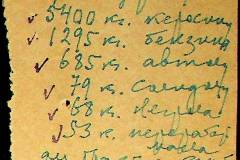 5400 кг. керосину
1295 кг. бензина
685 кг. автолу
79 кг. солидолу
68 кг. негрола
53 кг. перераб
масла